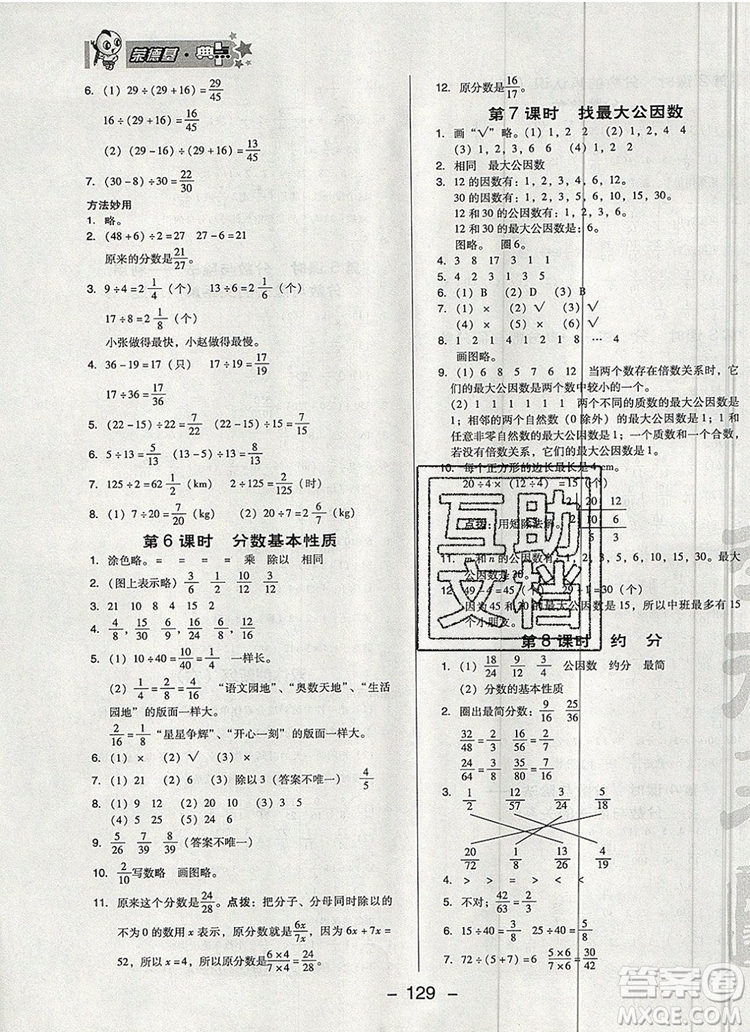 荣德基·典点
6. (1) 29÷(29+16)=29/45
16÷(29+16)=16/45
(2) (29-16)÷(29+16)=13/45
7. (30-8)÷30=22/30
方法妙用
1. 略。
2. (48+6)÷2=27 27-6=21
原来的分数是21/27
3. 9÷4=2 1/4(个) 13÷6=2 1/6(个)
17÷8=2 1/8(个)
小张做得最快,小赵做得最慢。
4. 36-19=17(只) 17÷19=17/19
17÷36=17/36
5. (22-15)÷22=7/22 (22-15)÷15=7/15
6. 5÷13=5/13 (13-5)÷13=8/13
7. 125÷2=62 1/2(km) 2÷125=2/125(时)
8. (1) 7÷20=7/20(kg) (2) 20÷7=2 6/7(kg)
第6课时 分数基本性质
1. 涂色略。 = = = = 乘 除以 相同
2. (图上表示略) 3/6 1/2 10/12 5/6
3. 21 10 8 4 2 15
4. 4/8 8/15 4/9 6/16
5. (1) 10÷40=10/40=1/4 一样长。
(2) 4/16=2/8=1/4 “语文园地”、“奥数天地”、“生活
园地”的版面一样大。
2/16=1/8 “星星争辉”、“开心一刻”的版面一样大。
6. (1) × (2) √ (3) √
7. (1) 21 (2) 6 (3) 除以3(答案不唯一) 4/5
8. (1) 9 12 (2) 20 (3) 3 15
(4) 5 25 (5) 12 24
9. 5/26 7/39 8/39(答案不唯一)
10. 2/10 写数略 画图略。
11. 原来这个分数是24/28。点拨:把分子、分母同时除以的
不为0的数用x表示,原分数就是6x/7x,因为6x+7x=
52,所以x=4,所以原分数是6×4/7×4=24/28。
12. 原分数是16/17。
第7课时 找最大公因数
1. 画“√”略。(1) 1,2 2 (2) 1,3 3
(3) 1,2,3,6 6 (4) 1,2 2
2. 相同 最大公因数
3. 12的因数有:1,2,3,4,6,12。
30的因数有:1,2,3,5,6,10,15,30。
12和30的公因数有:1,2,3,6。
图略。圈6。
4. 3 8 17 3 1 1
5. 4 2 3 1 3 5
6. (1) B (2) D (3) B
7. (1) × (2) √ (3) √
(4) × (5) √ (6) ×
8. 1 2 1 4 1 2 1 8 ⋯ 4
画图略。
9. (1) 6 7 8 5 7 12 当两个数存在倍数关系时,它
们的最大公因数是两个数中较小的一个。
(2) 1 1 1 1 1 1 两个不同的质数的最大公因数是
1;相邻的两个自然数(0除外)的最大公因数是1;1和
任意非零自然数的最大公因数是1;一个质数和一个合数,
若没有倍数关系,它们的最大公因数是1。
10. 每个正方形的边长最长是4 cm。
20÷4×(12÷4)=15(个)
点拨:用短除法解。
2 20 12
2 10 6
5 3
11. m和n的公因数有:1,2,3,5,6,10,15,30。最大
公因数是30。
12. 49-4=45(个) 29+1=30(个)
因为45和30的最大公因数是15,所以中班最多有
15个小朋友。
第8课时 约 分
1. (1) 18/24 9/12 3/4 公因数 约分 最简
(2) 分数的基本性质
2. 圈出最简分数:9/16 25/36
32/48=2/3 30/50=3/5 28/49=4/7
24/64=3/8 66/72=11/12
3. 1/2 12/57 3/24 5/18
20/72 1/8 13/26 4/19
4. > > = < < >
5. 不对;42/63=2/3
6. 15÷40=3/8 25÷40=5/8
7. 72÷(5+7)=6 5×6/7×6=30/42
互助
文档
- 129 -
答案圈
MXQE.COM